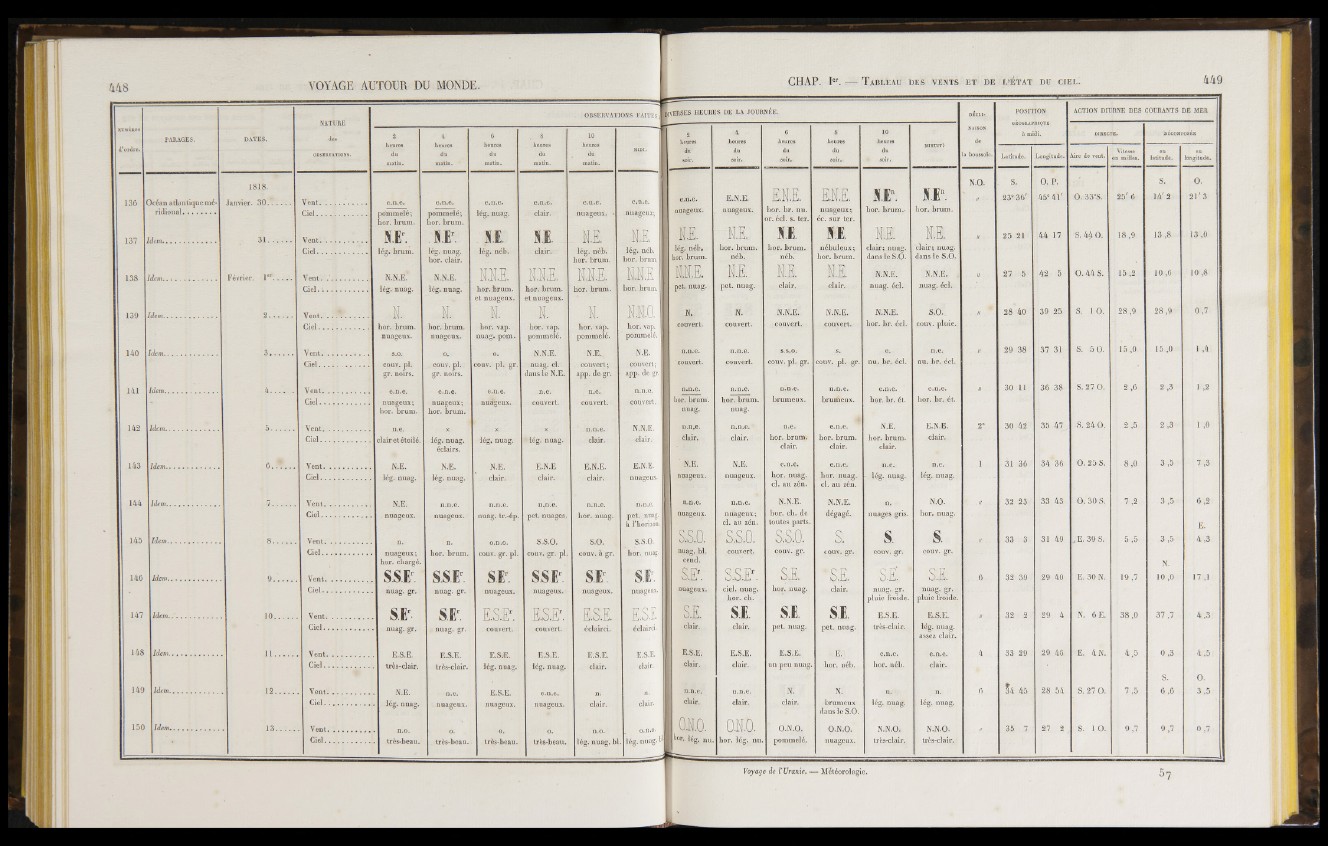 448
VOYAGE AUTOUR DU MONDE.
NUMÉROS d'ordre. PARAGES. DATES. NATURE des OBSERVATIONS. OBSERVATIONS FAITES
2 heures du matin. 4 heures du matin. 6 heures du matin. 8 heures du matin. 10 heures du matin. MIDI.
1818.
136 Océan atlantique méridional. Janvier. 30. Vent. e.n.e. e.n.e. e.n.e. e.n.e. e.n.e. e.n.e.
Ciel. pommelé; hor. brum. pommelé; hor. brum. lég. nuag. clair. nuageux. nuageux;
137 Idem. 31. Vent. N.Er. N.Er. N.E. N.E. N.E. N.E.
Ciel. lég. brum. lég. nuag. hor. clair. lég. néb. clair. lég. néb. hor. brum. lég. néb. hor. brum.
138 Idem. Février. 1er. Vent. N.N.E. N.N.E. N.N.E. N.N.E. N.N.E. N.N.E.
Ciel. lég. nuag. lég. nuag. hor. brum. et nuageux. hor. brum. et nuageux. hor. brum. hor. brum.
139 Idem. 2. Vent. N. N. N. N. N. N.N.O.
Ciel. hor. brum. nuageux. hor. brum. nuageux. hor. vap. nuag. pom. hor. vap. pommelé. hor. vap. pommelé. hor. vap. pommelé.
140 Idem. 3. Vent. s.o. o. o. N.N.E. N.E. N.E.
Ciel. couv. pl. gr. noirs. couv. pl. gr. noirs. couv. pl. gr. nuag. cl. dans le N.E. couvert; app. de gr. couvert; app. de gr.
141 Idem. 4. Vent. e.n.e. e.n.e. e.n.e. n.e. n.e. n.n.e.
Ciel. nuageux; hor. brum. nuageux; hor. brum. nuageux. couvert. couvert. couvert.
142 Idem. 5. Vent. n.e. × × × n.n.e. N.N.E.
Ciel. clair et étoilé. lég. nuag. éclairs. lég. nuag. lég. nuag. clair. clair.
143 Idem. 6. Vent. N.E. N.E. N.E. E.N.E E.N.E. E.N.E.
Ciel. lég. nuag. lég. nuag. clair. clair. clair. nuageux.
144 Idem. 7. Vent. N.E. n.n.e. n.n.e. n.n.e. n.n.e. n.n.e.
Ciel. nuageux. nuageux. nuag. tr.-ép. pet. nuages. hor. nuag. pet. nuag. à l'horizon.
145 Idem. 8. Vent. n. n. o.n.o. S.S.O. S.O. S.S.O.
Ciel. nuageux; hor. chargé. hor. brum. couv. gr. pl. couv. gr. pl. couv. à gr. hor. nuag.
146 Idem. 9. Vent. S.S.Er. S.S.Er. S.Er. S.S.Er. S.Er. S.Er.
Ciel. nuag. gr. nuag. gr. nuageux. nuageux. nuageux. nuageux.
147 Idem. 10. Vent. S.Er. S.Er. E.S.Er. E.S.Er. E.S.E. E.S.E.
Ciel. nuag. gr. nuag. gr. couvert. couvert. éclairci. éclairci.
148 Idem. 11. Vent. E.S.E. E.S.E. E.S.E. E.S.E. E.S.E. E.S.E.
Ciel. très-clair. très-clair. lég. nuag. lég. nuag. clair. clair.
149 Idem. 12. Vent. N.E. n.e. E.S.E. e.n.e. n. n.
Ciel. lég. nuag. nuageux. nuageux. nuageux. clair. clair.
150 Idem. 13. Vent. n.o. o. o. o. n.o. o.n.o.
Ciel. très-beau. très-beau. très-beau. très-beau. lég. nuag. bl. lég. nuag.
CHAP. Ier. — TABLEAU DES VENTS ET DE L'ÉTAT DU CIEL.
449
DIVERSES HEURES DE LA JOURNÉE. DÉCLINAISON de la boussole. POSITION GÉOGRAPHIQUE à midi. ACTION DIURNE DES COURANTS DE MER
2 heures du soir. 4 heures du soir. 6 heures du soir. 8 heures du soir. 10 heures du soir. MINUIT. Latitude. Longitude. DIRECTE. Aire de vent. Vitesse en milles. DÉCOMPOSÉE en latitude. en longitude.
N.O. S. O. P. S. O.
e.n.e. E.N.E E.N.E. E.N.E. N.En. N.En. " 23° 36' 45° 41' O. 33°S. 25' 6 14' 2 21' 3
nuageux. nuageux. hor. br. nu. or. écl. s. ter. nuageux; éc. sur ter. hor. brum. hor. brum.
N.E. N.E. N.E. N.E. N.E. N.E. " 25 21 44 17 S. 44 O. 18,9 13,8 13,0
lég. néb. hor. brum. hor. brum. néb. hor. brum. néb. nébuleux; hor. brum. clair; nuag. dans le S.O. clair; nuag. dans le S.O.
N.N.E. N.E. N.E. N.E. N.N.E. N.N.E. " 27 5 42 5 O. 44 S. 15,2 10,6 10,8
pet. nuag. pet. nuag. clair. clair. nuag. écl. nuag. écl.
N. N. N.N.E. N.N.E. N.N.E. S.O. " 28 40 39 25 S. 1 O. 28,9 28,9 0,7
couvert. couvert. couvert. couvert. hor. br. écl. couv. pluie.
n.n.e. n.n.e. s.s.o. s. e. n.e. " 29 38 37 31 S. 5 O. 15,0 15,0 1,4
couvert. couvert. couv. pl. gr. couv. pl. gr. nu. br. écl. nu. br. écl.
n.n.e. n.n.e. n.n.e. n.n.e. e.n.e. e.n.e. " 30 11 36 38 S. 27 O. 2,6 2,3 1,2
hor. brum. nuag. hor. brum. nuag. brumeux. brumeux. hor. br. ét. hor. br. ét.
n.n.e. n.n.e. n.e. e.n.e. N.E. E.N.E. 2° 30 42 35 47 S. 24 O. 2,5 2,3 1,0
clair. clair. hor. brum. clair. hor. brum. clair. hor. brum. clair. clair.
N.E. N.E. e.n.e. e.n.e. n.e. n.e. 1 31 36 34 36 O. 25 S. 8,0 3,5 7,3
nuageux. nuageux. hor. nuag. cl. au zén. hor. nuag. cl. au zén. lég. nuag. lég. nuag.
n.n.e. n.n.e. N.N.E. N.N.E. n. N.O. " 32 25 33 45 O. 30 S. 7,2 3,5 6,2
nuageux. nuageux; cl. au zén. hor. ch. de toutes parts. dégagé. nuages gris. hor. nuag.
E.
S.S.O. S.S.O. S.S.O. S. S. S. " 33 3 31 49 E. 39 S. 5,5 3,5 4,3
nuag. bl. cend. couvert. couv. gr. couv. gr. couv. gr. couv. gr.
N.
S.Er. S.S.Er. S.E. S.E. S.E. S.E. 6 32 39 29 40 E. 30 N. 19,7 10,0 17,1
nuageux. ciel. nuag. hor. ch. hor. nuag. clair. nuag. gr. pluie froide. nuag. gr. pluie froide.
S.E. S.E. S.E. S.E. E.S.E. E.S.E. " 32 2 29 4 N. 6 E. 38,0 37,7 4,3
clair. clair. pet. nuag. pet. nuag. très-clair. lég. nuag. assez clair.
E.S.E. E.S.E. E.S.E. E. e.n.e. e.n.e. 4 33 29 29 46 E. 4 N. 4,5 0,3 4,5
clair. clair. un peu nuag. hor. néb. hor. néb. clair.
S. O.
n.n.e. n.n.e. N. N. n. n. 6 34 45 28 54 S. 27 O. 7,5 6,6 3,5
clair. clair. clair. brumeux dans le S.O. lég. nuag. lég. nuag.
O.N.O. O.N.O. O.N.O. O.N.O. N.N.O. N.N.O. " 35 7 27 2 S. 1 O. 9,7 9,7 0,7
hor. lég. nu. hor. lég. nu. pommelé. nuageux. très-clair. très-clair.
Voyage de l'Uranie. — Météorologie.
57